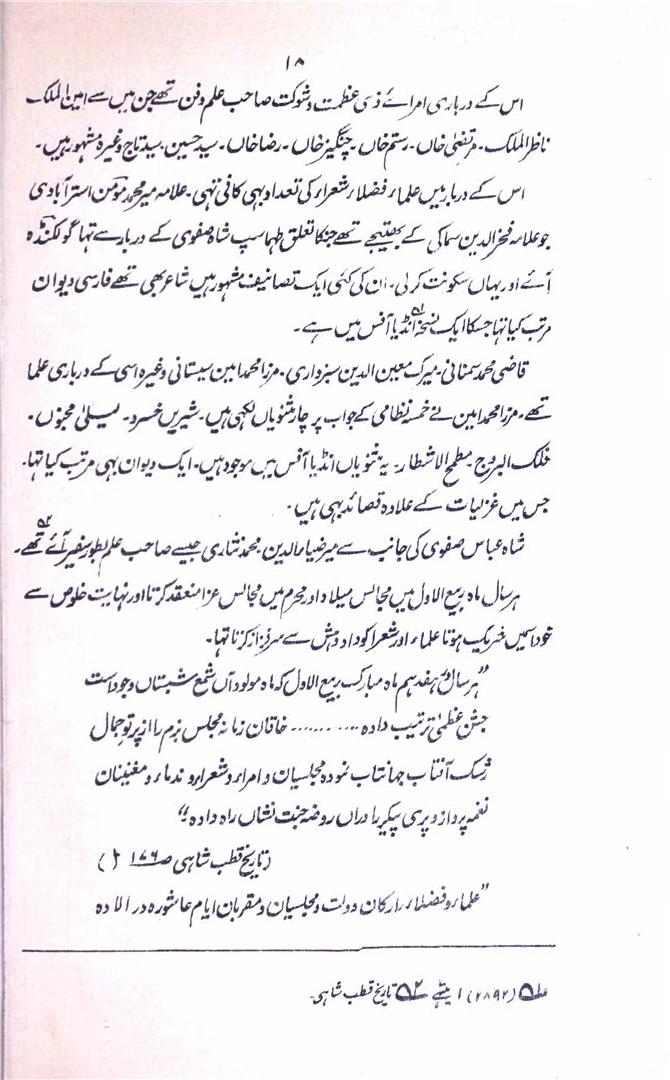 ۱۸
اس کے درباری امرائے ذی عظمت وشوکت صاحب علم وفن تھے جن میں سے امین الملک
ناظر الملک۔ مرتضیٰ خاں۔ رستم خاں۔ چنگیز خاں۔ رضا خاں۔ سید حسین۔ سید تاج وغیرہ مشہور ہیں۔
اس کے دربار میں علماء فضلاء شعراء کی تعداد بہی کافی تہی۔ علامہ میر محمد مومن استرآبادی
جو علامہ فخر الدین سماکی کے بھتیجے تھے جنکا تعلق طہماسپ شاہ صفوی کے دربار سے تہا گولکنڈہ
آئے اور یہاں سکونت کرلی۔ ان کی کئی ایک تصانیف مشہور ہیں شاعر بھی تھے فارسی دیوان
مرتب کیا تہا جسکا ایک نسخہ انڈیا آفس میں ہے۔
قاضی محمد سمنانی۔ میرک معین الدین سبزواری۔ مرزا محمد امین سیستانی وغیرہ اسی کے درباری علما
تھے۔ مرزا محمد امین نے خمسہ نظامی کے جواب پر چار مثنویاں لکھی ہیں۔ شیریں خسرو۔ لیلیٰ مجنوں۔
فلک البروج۔ مطمح الاشطار۔ یہ مثنویاں انڈیا آفس میں موجود ہیں۔ ایک دیوان بہی مرتب کیا تہا۔
جس میں غزلیات کے علاوہ قصائد بہی ہیں۔
شاہ عباس صفوی کی جانب سے میر ضیاء الدین محمد نثاری جیسے صاحب علم بطور سفیر آئے تھے۔
ہر سال ماہ ربیع الاول میں مجالس میلاد اور محرم میں مجالس عزا منعقد کرتا اور نہایت خلوص سے
خود اسمیں شریک ہوتا علماء اور شعرا کو داد و دہش سے سرفراز کرتا تہا۔
"ہر سال ہفدہم ماہ مبارک ربیع الاول کہ ماہ مولود آں شمع شبستاں وجود است
جشن عظمیٰ ترتیب دادہ ........... خاقان زمانہ مجلس بزم را از پرتو جمال
رشک آفتاب جہانتاب نمودہ مجلسیان و امراء و شعراء و ندماء و مغنینان
نغمہ پرداز و پری پیکر را دراں روضہ جنت نشاں راہ دادہ"
(تاریخ قطب شاہی ص ۱۷۶)
"علماء و فضلاء ارکان دولت و مجلسیان و مقربان ایام عاشورہ در الادہ
۱ (۲۸۹۲) ایتھے ۲ تاریخ قطب شاہی۔